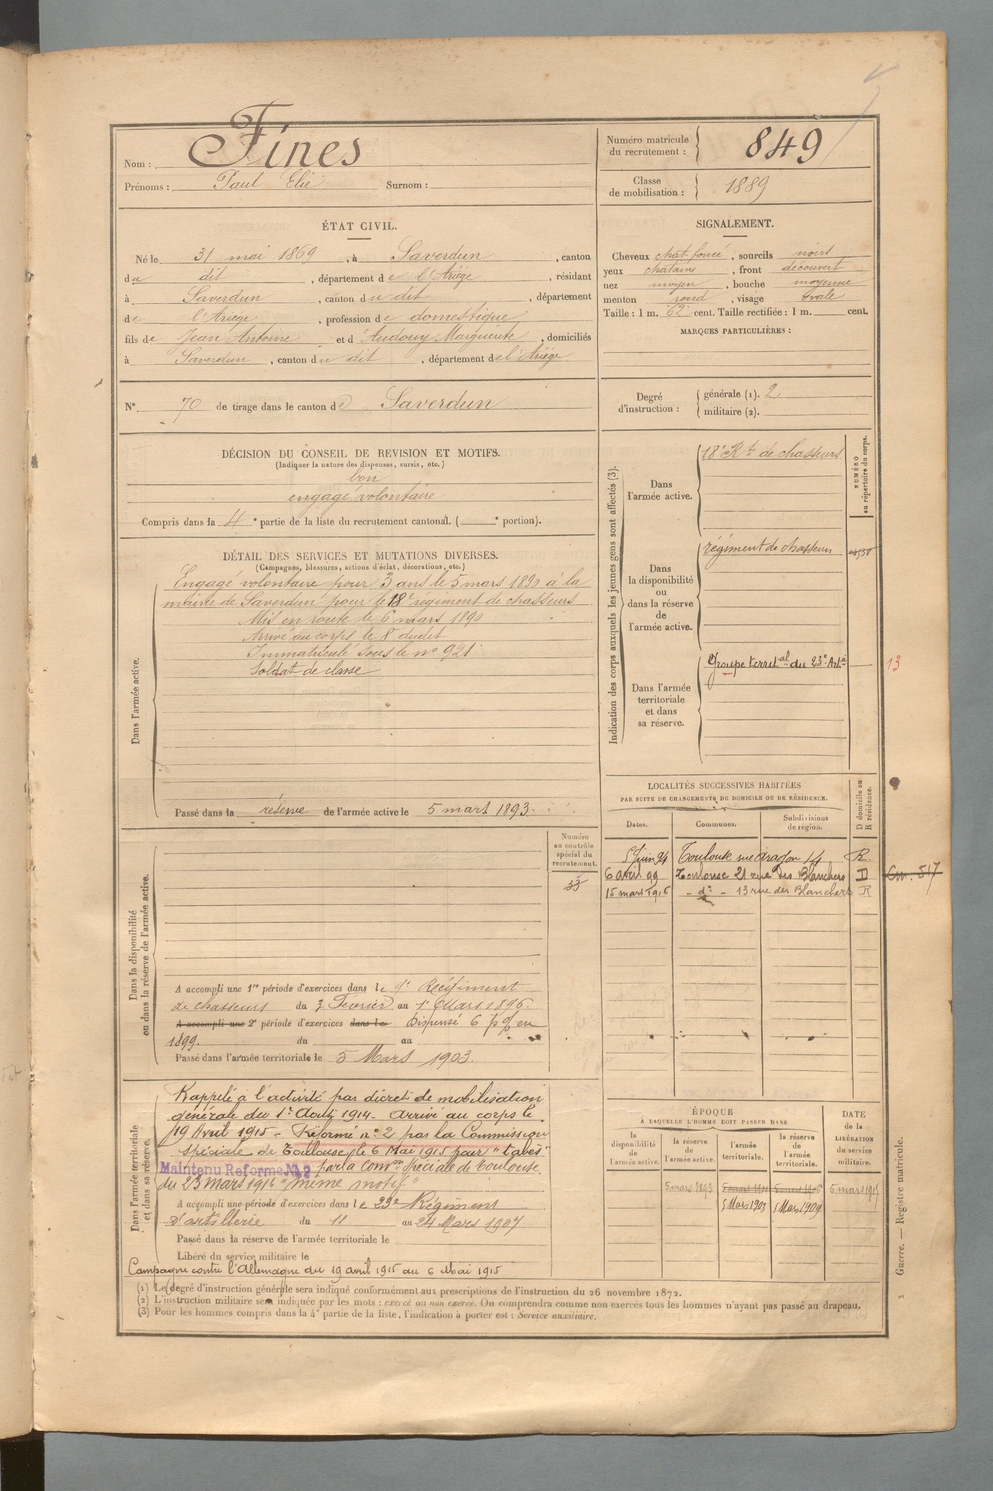 Nom : Fines
Prénoms : Paul Elie Surnom :
Numéro matricule du recrutement : 849
Classe de mobilisation : 1889
ÉTAT CIVIL.
Né le 31 mai 1869, à Saverdun, canton
du dit, département de l'Ariège, résidant
à Saverdun, canton du dit, département
de l'Ariège, profession de domestique
fils de Jean Antoine et d'Audouy Marguerite, domiciliés
à Saverdun, canton du dit, département de l'Ariège
N° 70 de tirage dans le canton de Saverdun
SIGNALEMENT.
Cheveux chat foncé, sourcils noirs
yeux chatains, front découvert
nez moyen, bouche moyenne
menton rond, visage ovale
Taille : 1 m. 62 cent. Taille rectifiée : 1 m. cent.
MARQUES PARTICULIÈRES :
Degré d'instruction : générale (1). 2
militaire (2).
DÉCISION DU CONSEIL DE REVISION ET MOTIFS.
(Indiquer la nature des dispenses, sursis, etc.)
bon
engagé volontaire
Compris dans la 4e partie de la liste du recrutement cantonal. ( e portion).
DÉTAIL DES SERVICES ET MUTATIONS DIVERSES.
(Campagnes, blessures, actions d'éclat, décorations, etc.)
Dans l'armée active.
Engagé volontaire pour 3 ans le 5 mars 1890 à la
mairie de Saverdun pour le 18e régiment de chasseurs
Mis en route le 6 mars 1890
Arrivé au corps le 8 dudit
Immatriculé sous le no 921
Soldat de classe
Passé dans la réserve de l'armée active le 5 mars 1893.
Indication des corps auxquels les jeunes gens sont affectés (3).
NUMÉRO au répertoire du corps.
Dans l'armée active.
18e Rt de chasseurs
Dans la disponibilité ou dans la réserve de l'armée active.
régiment de chasseurs
Dans l'armée territoriale et dans sa réserve.
Groupe territal du 23e Artie
13
LOCALITÉS SUCCESSIVES HABITÉES
PAR SUITE DE CHANGEMENTS DE DOMICILE OU DE RÉSIDENCE.
D domicile ou R résidence.
Dates. Communes. Subdivisions de région.
5 Juin 94 Toulouse rue aragon 14 R.
6 avril 99 Toulouse 21 rue des Blanchers D
15 mars 1916 - do - 13 rue des Blanchers R
517
Dans la disponibilité ou dans la réserve de l'armée active.
Numéro au contrôle spécial du recrutement.
33
A accompli une 1re période d'exercices dans le 9e Régiment
de chasseurs du 3 Février au 1er Mars 1896.
A accompli une 2e période d'exercices dans le Dispensé 6 % en
1899. du au
Passé dans l'armée territoriale le 5 Mars 1903.
Dans l'armée territoriale et dans sa réserve.
Rappelé à l'activité par décret de mobilisation
générale du 1er Août 1914. Arrivé au corps le
19 Avril 1915 - Réformé no 2 par la Commission
spéciale de Toulouse le 6 Mai 1915 pour "tabès"
Maintenu Reforme No 2 par la Comon Spéciale de Toulouse
du 23 Mars 1916 "même motif"
A accompli une période d'exercices dans le 23e Régiment
d'artillerie du 11 au 24 Mars 1907
Passé dans la réserve de l'armée territoriale le
Libéré du service militaire le
Campagne contre l'Allemagne du 19 avril 1915 au 6 Mai 1915
ÉPOQUE
A LAQUELLE L'HOMME DOIT PASSER DANS
la disponibilité de l'armée active. la réserve de l'armée active. l'armée territoriale. la réserve de l'armée territoriale.
DATE de la LIBÉRATION du service militaire.
5 mars 1893 5 mars 1915
5 Mars 1903 1 Mars 1909
(1) Le degré d'instruction générale sera indiqué conformément aux prescriptions de l'instruction du 26 novembre 1872.
(2) L'instruction militaire sera indiquée par les mots : exercé ou non exercé. On comprendra comme non exercés tous les hommes n'ayant pas passé au drapeau.
(3) Pour les hommes compris dans la 4e partie de la liste, l'indication à porter est : Service auxiliaire.
Guerre. — Registre matricule. 1